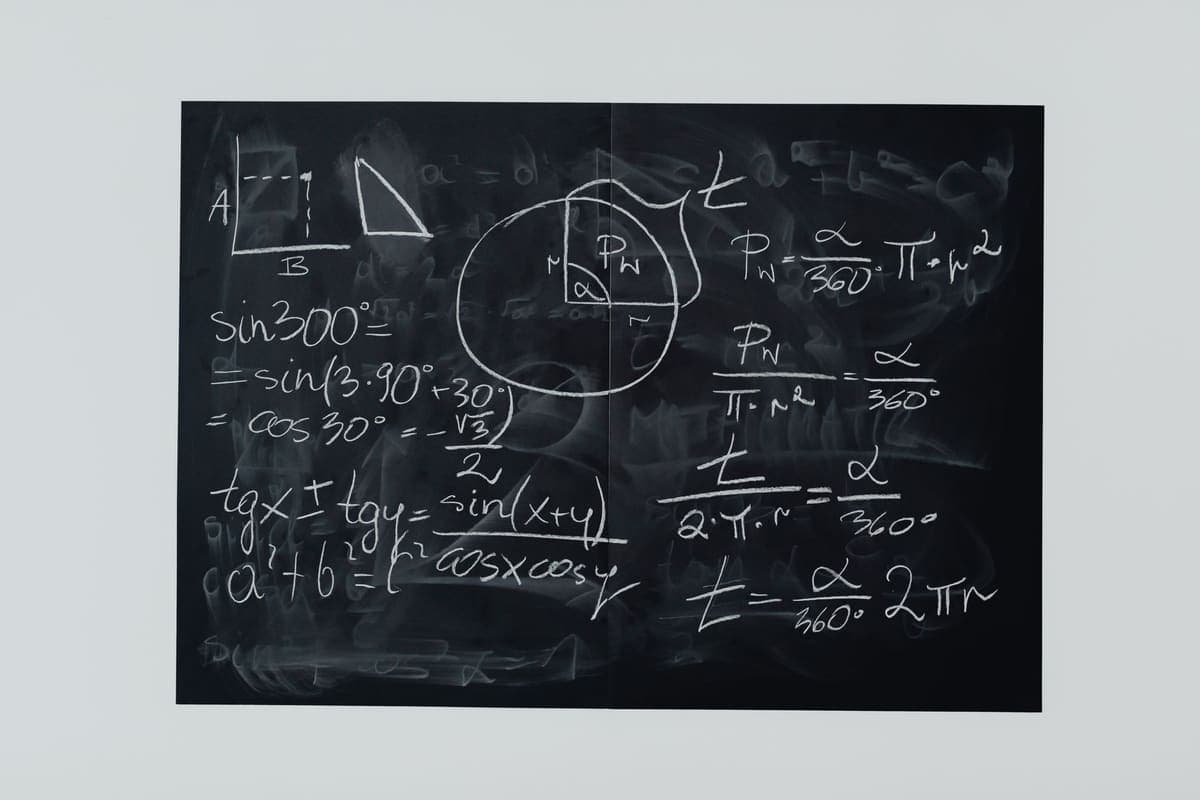 A
B
sin300°=
=sin(3·90°+30°)
= cos 30° = -√3/2
tgx ± tgy = sin(x+y)/cosxcosy
a²+b²=c²
t
Pw
r
α
r
Pw = α/360° π·r²
Pw/π·r² = α/360°
t/2·π·r = α/360°
t = α/360° 2πr